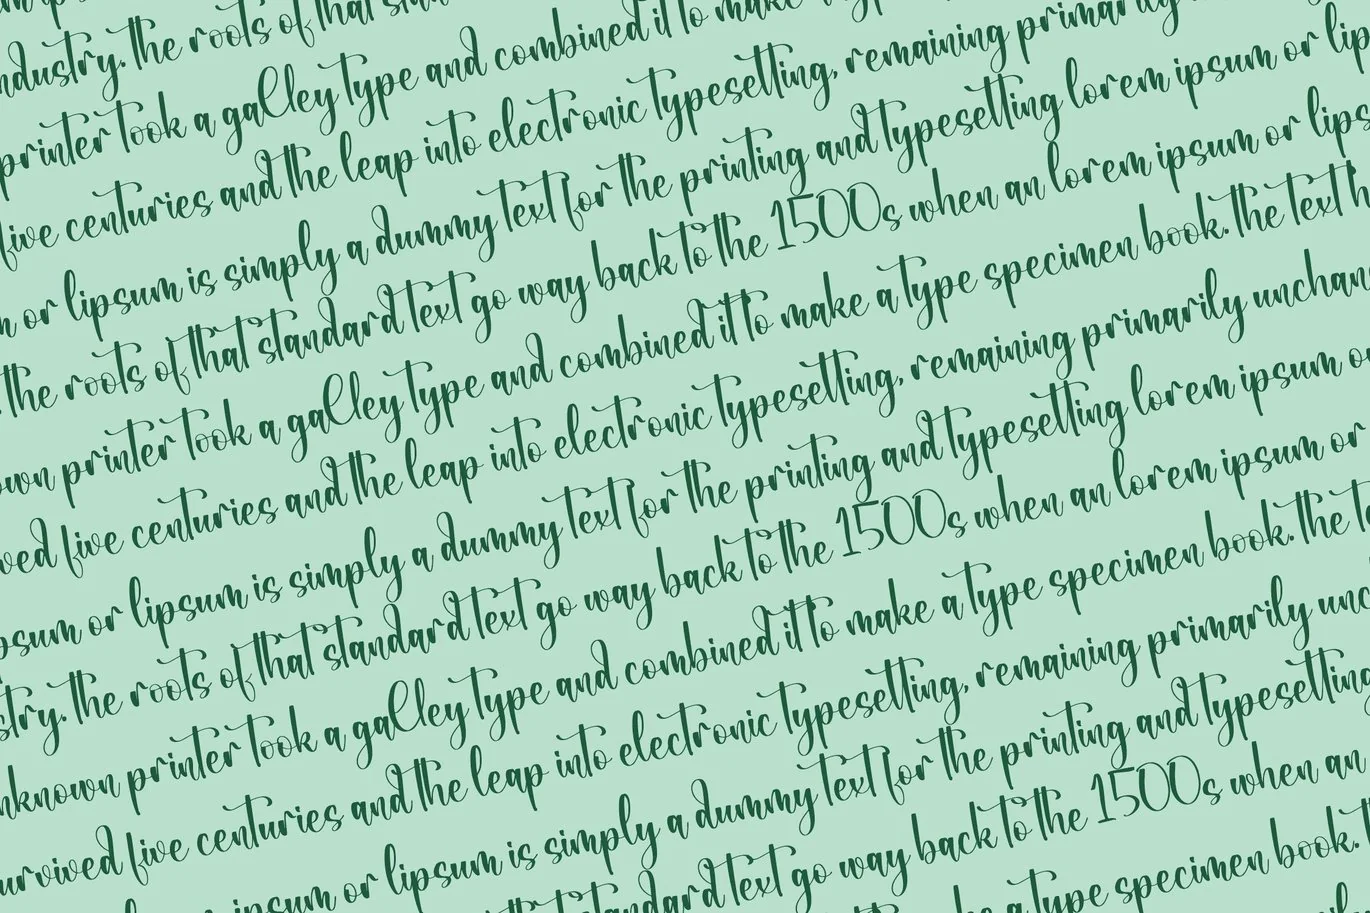 ndustry. the roots of that
printer took a galley type and combined it to make
five centuries and the leap into electronic typesetting, remaining primarily
m or lipsum is simply a dummy text for the printing and typesetting lorem ipsum or lip
. the roots of that standard text go way back to the 1500s when an lorem ipsum or lips
own printer took a galley type and combined it to make a type specimen book. the text h
ved five centuries and the leap into electronic typesetting, remaining primarily unchan
psum or lipsum is simply a dummy text for the printing and typesetting lorem ipsum o
stry. the roots of that standard text go way back to the 1500s when an lorem ipsum or
nknown printer took a galley type and combined it to make a type specimen book. the t
urvived five centuries and the leap into electronic typesetting, remaining primarily unc
ipsum or lipsum is simply a dummy text for the printing and typesetting
standard text go way back to the 1500s when an
make a type specimen book.